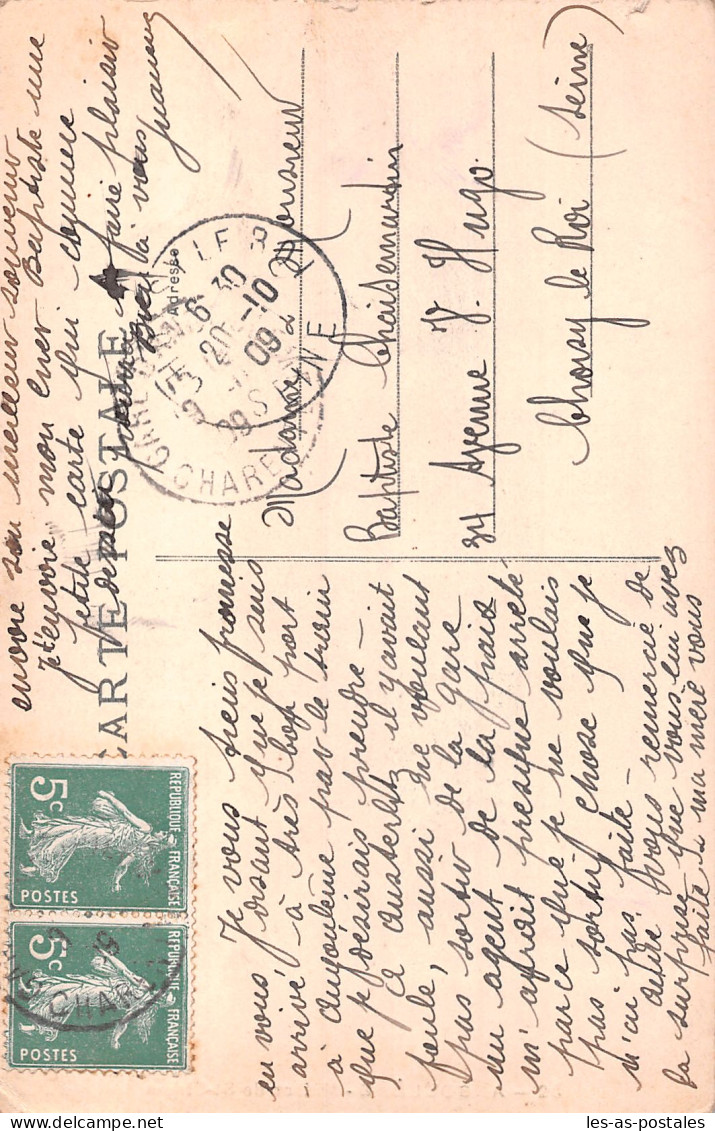 CARTE POSTALE
Adresse
Je vous tiens promesse
en vous disant que je suis
arrivé à très bon port
à Angoulême par le train
que je désirais prendre —
A Austerlitz il y avait
foule, aussi ne voulant
pas sortir de la gare
un agent de la paix
m'aurait presque arrêté
parce que je ne voulais
pas sortir chose que je
n'ai pas faite —
vous remercie de
la surprise que vous lui avez
faite ma mère vous
envoie son meilleur souvenir
J't'envoie mon cher Baptiste une
petite carte qui comme
faire plaisir
Bien à vous
Madame & Monsieur
Baptiste Chaisemartin
34 Avenue V. Hugo.
Choisy le Roi (Seine)
CHOISY LE ROI
6 30
20 -10
09
SEINE
GARE
CHARENTE
REPUBLIQUE FRANÇAISE
5c
POSTES
REPUBLIQUE FRANÇAISE
5c
POSTES
les-as-postales